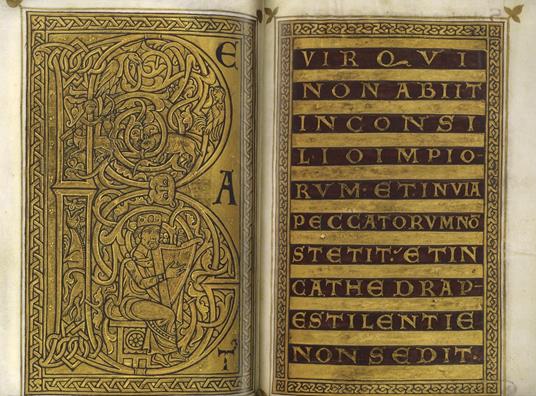 B
E
A
T
VIR QVI
NON ABIIT
IN CONSI
LIO IMPIO·
RVM · ET IN VIA
PECCATORVM NŌ
STETIT· ET IN
CATHEDRA P·
ESTILENTIE
NON SEDIT·